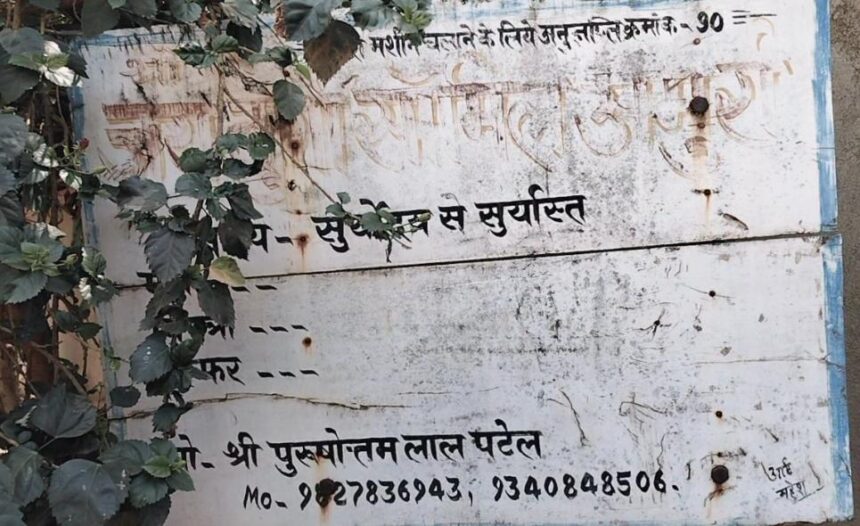 मशीन चलाने के लिये अनुज्ञप्ति क्रमांक - 90
सॉ मिल
य - सुर्योदय से सुर्यास्त
---
त्रा ---
फर ---
गो - श्री पुरुषोत्तम लाल पटेल
Mo - 9827836943, 9340848506.
आर्ट
महेश